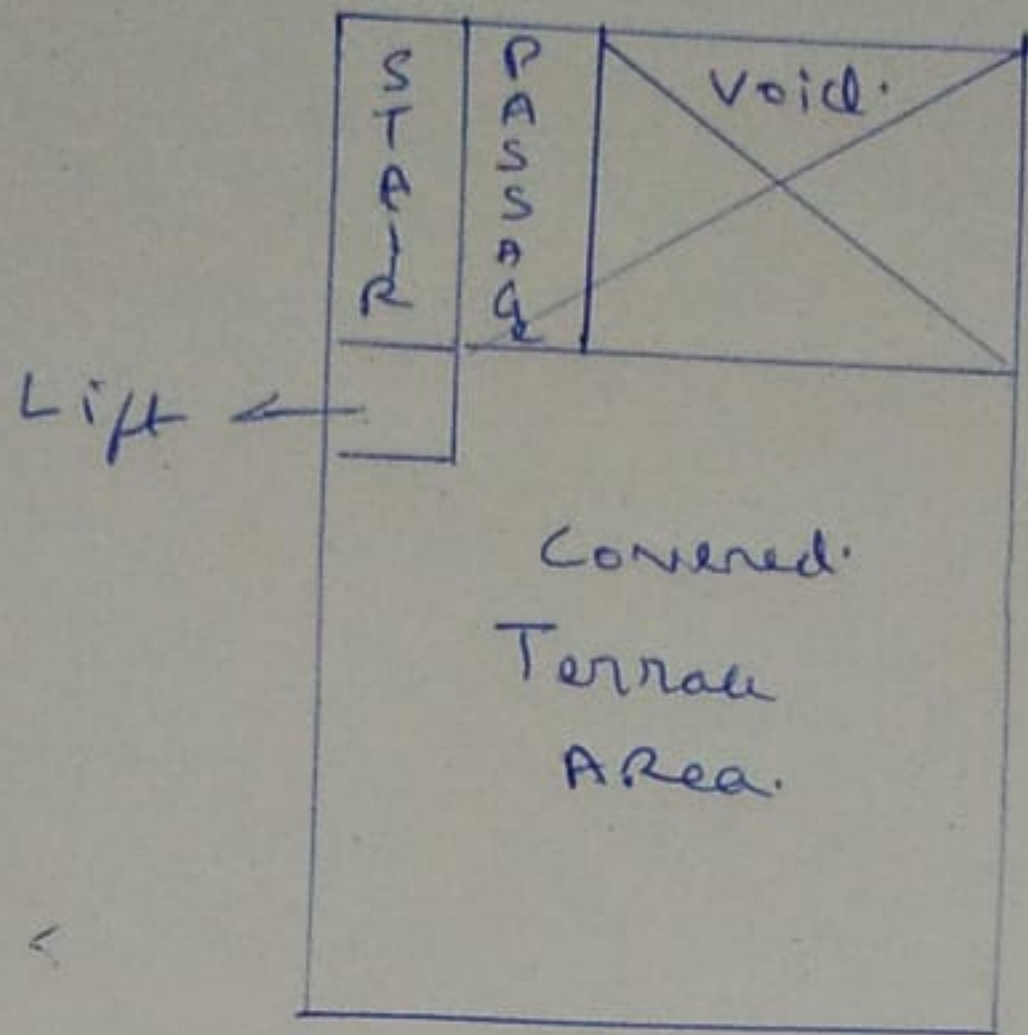 STAIR
PASSAGE
Void.
Lift
Covered.
Terrace
ARea.